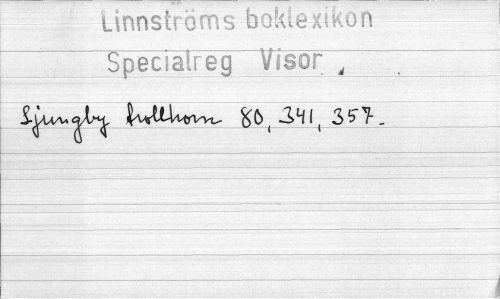 Linnströms boklexikon
Specialreg Visor.
Ljungby trollhorn 80, 341, 357.